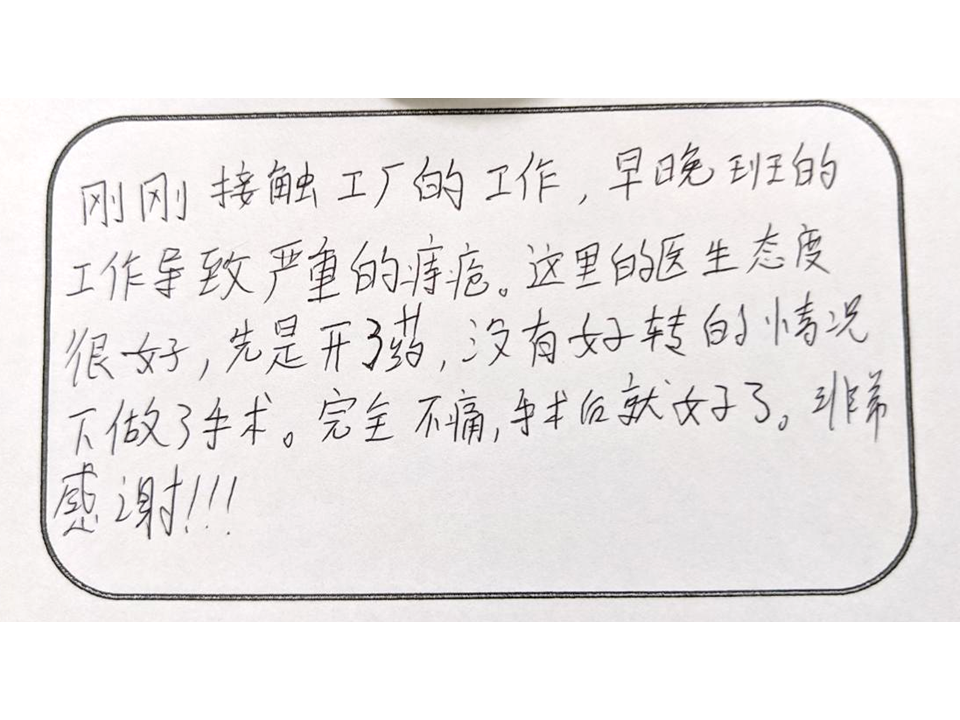 刚刚接触工厂的工作，早晚班的
工作导致严重的痔疮。这里的医生态度
很好，先是开了药，没有好转的情况
下做了手术。完全不痛，手术后就好了。非常
感谢!!!